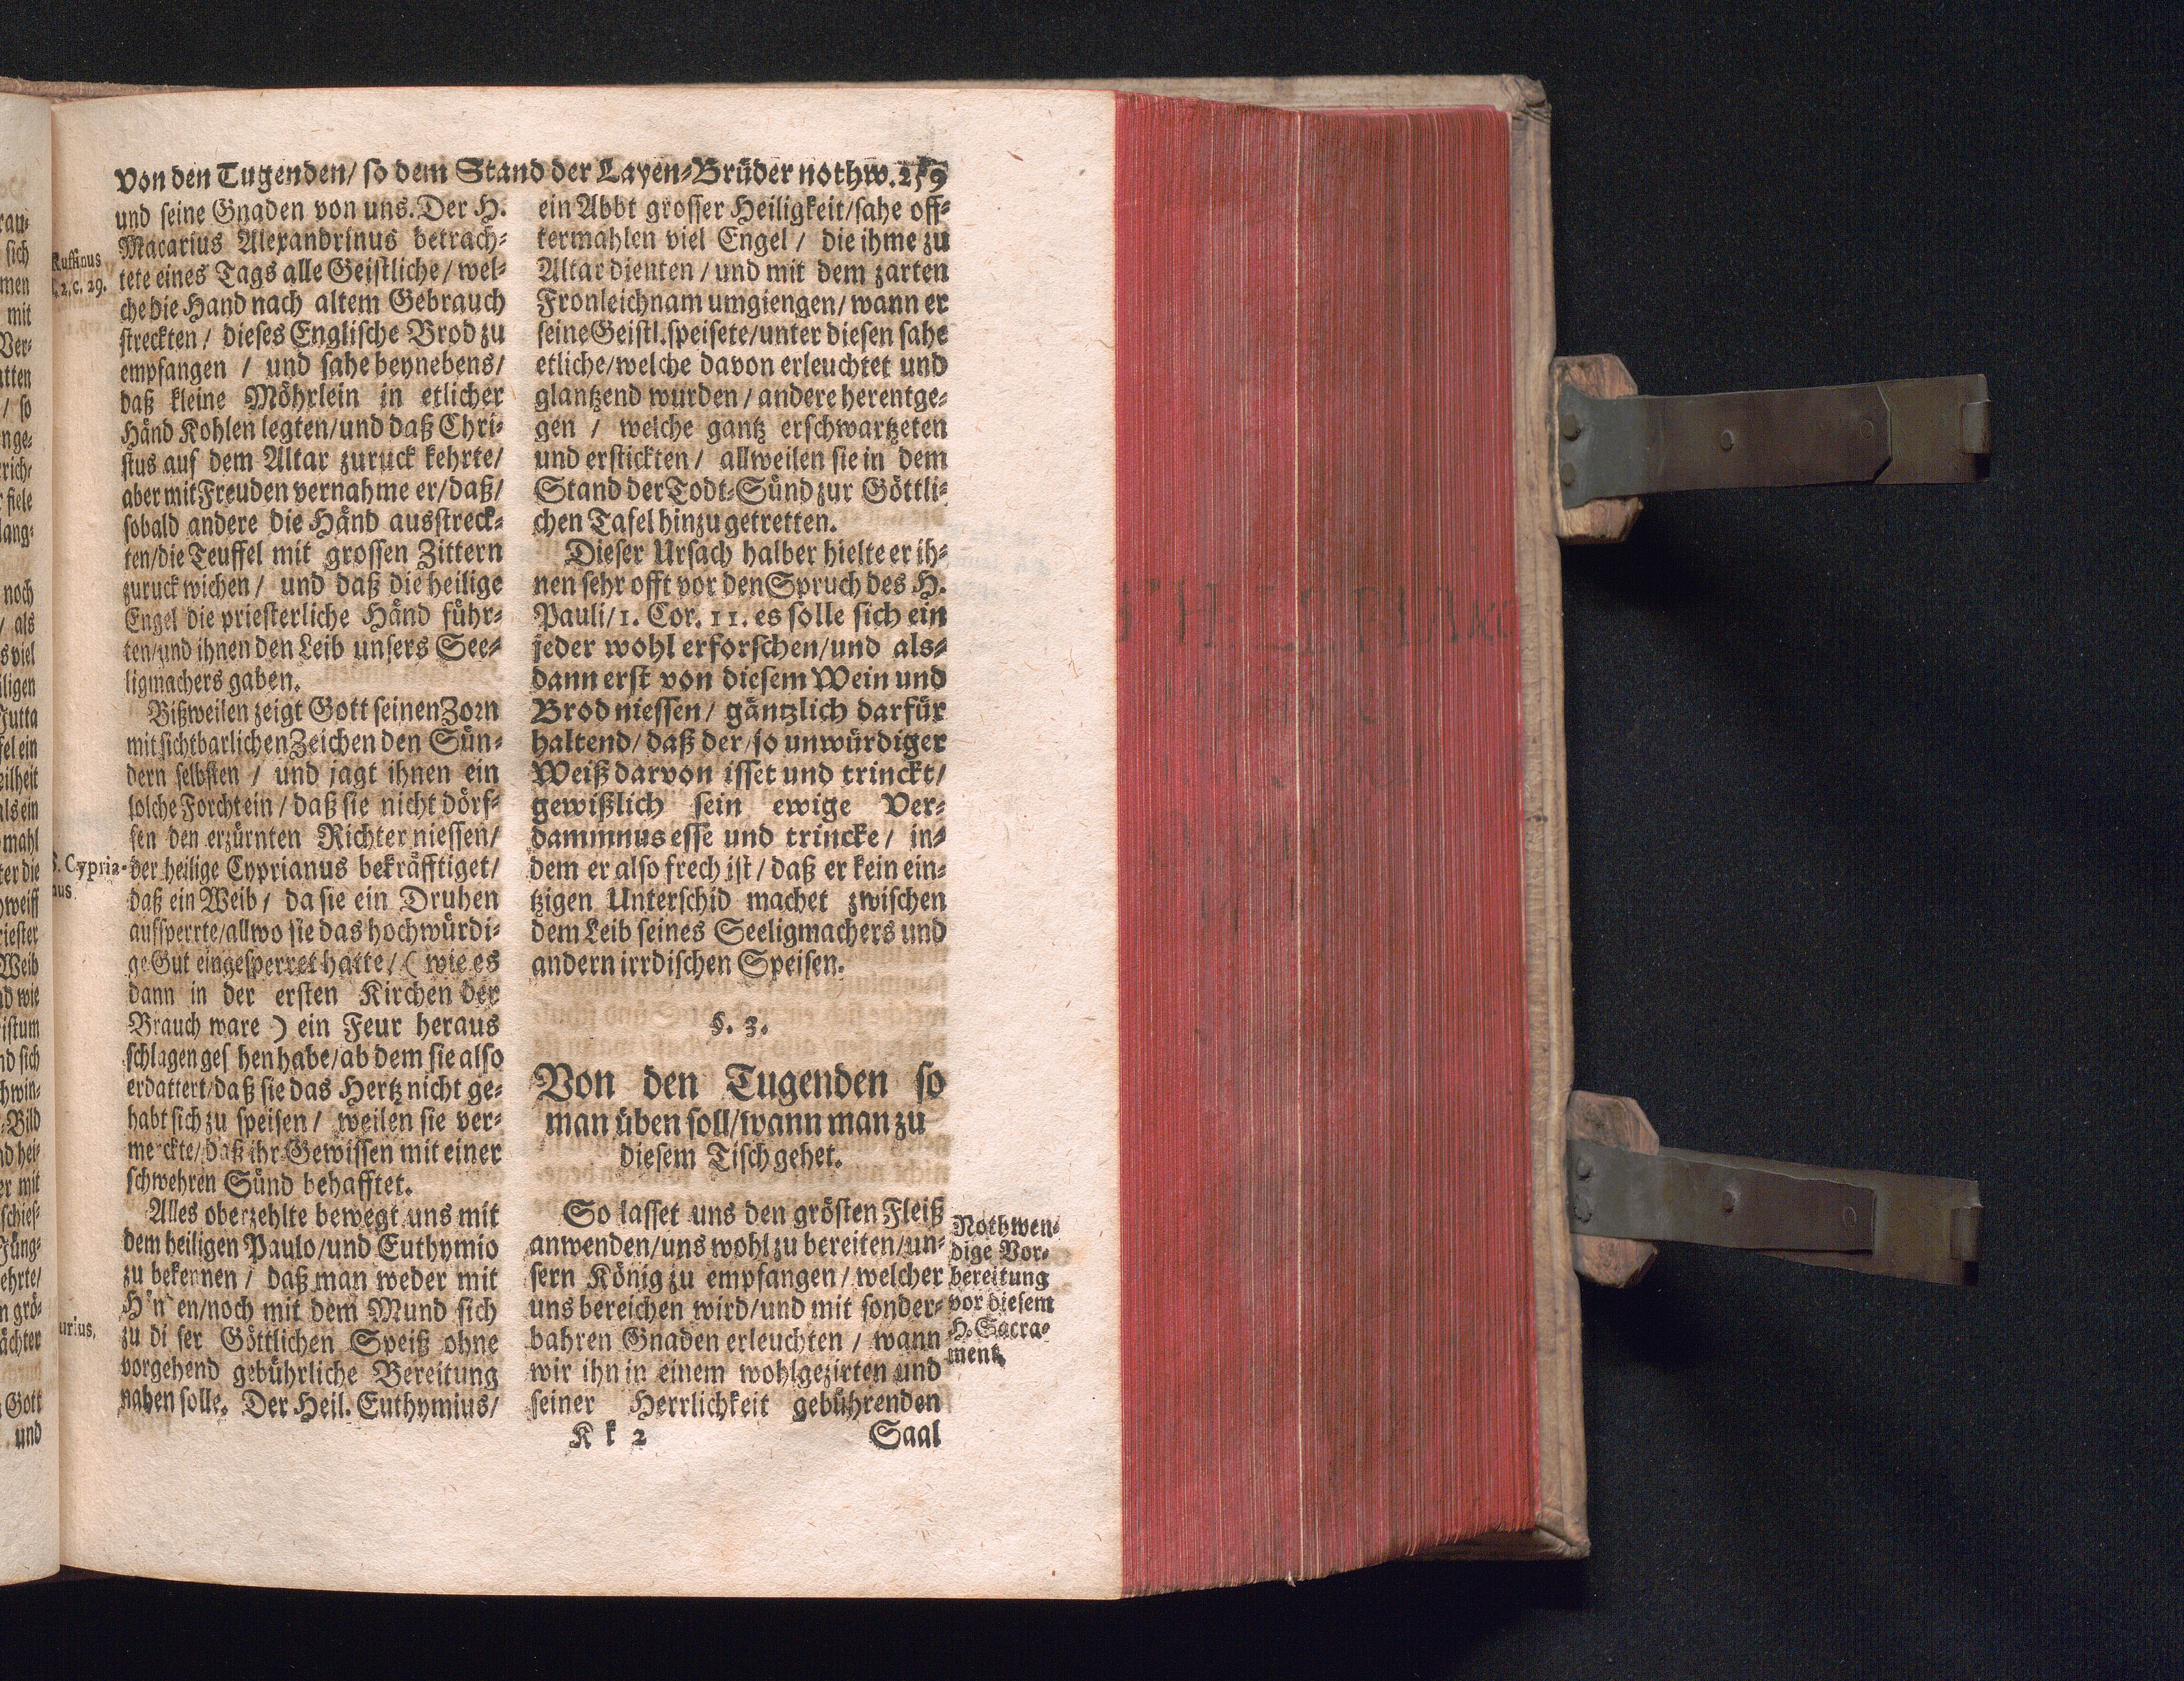 Von den Tugenden/ so dem Stand der Layen-Brüder nothw. 259
und seine Gnaden von uns. Der H.
Macarius Alexandrinus betrach-
tete eines Tags alle Geistliche/ wel-
che die Hand nach altem Gebrauch
streckten/ dieses Englische Brod zu
empfangen / und sahe beynebens/
daß kleine Möhrlein in etlicher
Händ Kohlen legten/und daß Chri-
stus auf dem Altar zuruck kehrte/
aber mit Freuden vernahme er/daß/
sobald andere die Händ ausstreck-
ten/die Teuffel mit grossen Zittern
zuruck wichen/ und daß die heilige
Engel die priesterliche Händ führ-
ten/und ihnen den Leib unsers See-
ligmachers gaben.
Bißweilen zeigt Gott seinen Zorn
mit sichtbarlichen Zeichen den Sün-
dern selbsten / und jagt ihnen ein
solche Forcht ein / daß sie nicht dörf-
fen den erzürnten Richter niessen/
der heilige Cyprianus bekräfftiget/
daß ein Weib / da sie ein Druhen
aufsperrte/allwo sie das hochwürdi-
ge Gut eingesperret hatte/ ( wie es
dann in der ersten Kirchen der
Brauch ware ) ein Feur heraus
schlagen ges hen habe/ab dem sie also
erdattert/daß sie das Hertz nicht ge-
habt sich zu speisen / weilen sie ver-
merckte/daß ihr Gewissen mit einer
schwehren Sünd behafftet.
Alles oberzehlte bewegt uns mit
dem heiligen Paulo/und Euthymio
zu bekennen / daß man weder mit
H n en/noch mit dem Mund sich
zu di ser Göttlichen Speiß ohne
vorgehend gebührliche Bereitung
nahen solle. Der Heil. Euthymius/
Ruffinus
l. 2. c. 29.
S. Cypria-
nus
urius.
ein Abbt grosser Heiligkeit/sahe off-
termahlen viel Engel / die ihme zu
Altar dienten / und mit dem zarten
Fronleichnam umgiengen/ wann er
seine Geistl. speisete/unter diesen sahe
etliche/welche davon erleuchtet und
glantzend wurden / andere herentge-
gen / welche gantz erschwartzeten
und erstickten / allweilen sie in dem
Stand der Todt-Sünd zur Göttli-
chen Tafel hinzu getretten.
Dieser Ursach halber hielte er ih-
nen sehr offt vor den Spruch des H.
Pauli/1. Cor. 11. es solle sich ein
jeder wohl erforschen/und als-
dann erst von diesem Wein und
Brod niessen/ gäntzlich darfür
haltend/ daß der/so unwürdiger
Weiß darvon isset und trinckt/
gewißlich sein ewige Ver-
dammnus esse und trincke/ in-
dem er also frech ist / daß er kein ein-
tzigen Unterschid machet zwischen
dem Leib seines Seeligmachers und
andern irrdischen Speisen.
§. 3.
Von den Tugenden so
man üben soll/wann man zu
diesem Tisch gehet.
So lasset uns den grösten Fleiß
anwenden/uns wohl zu bereiten/un-
sern König zu empfangen / welcher
uns bereichen wird/und mit sonder-
bahren Gnaden erleuchten / wann
wir ihn in einem wohlgezirten und
seiner Herrlichkeit gebührenden
Nothwen-
dige Vor-
bereitung
vor diesem
H. Sacra-
ment.
K k 2 Saal